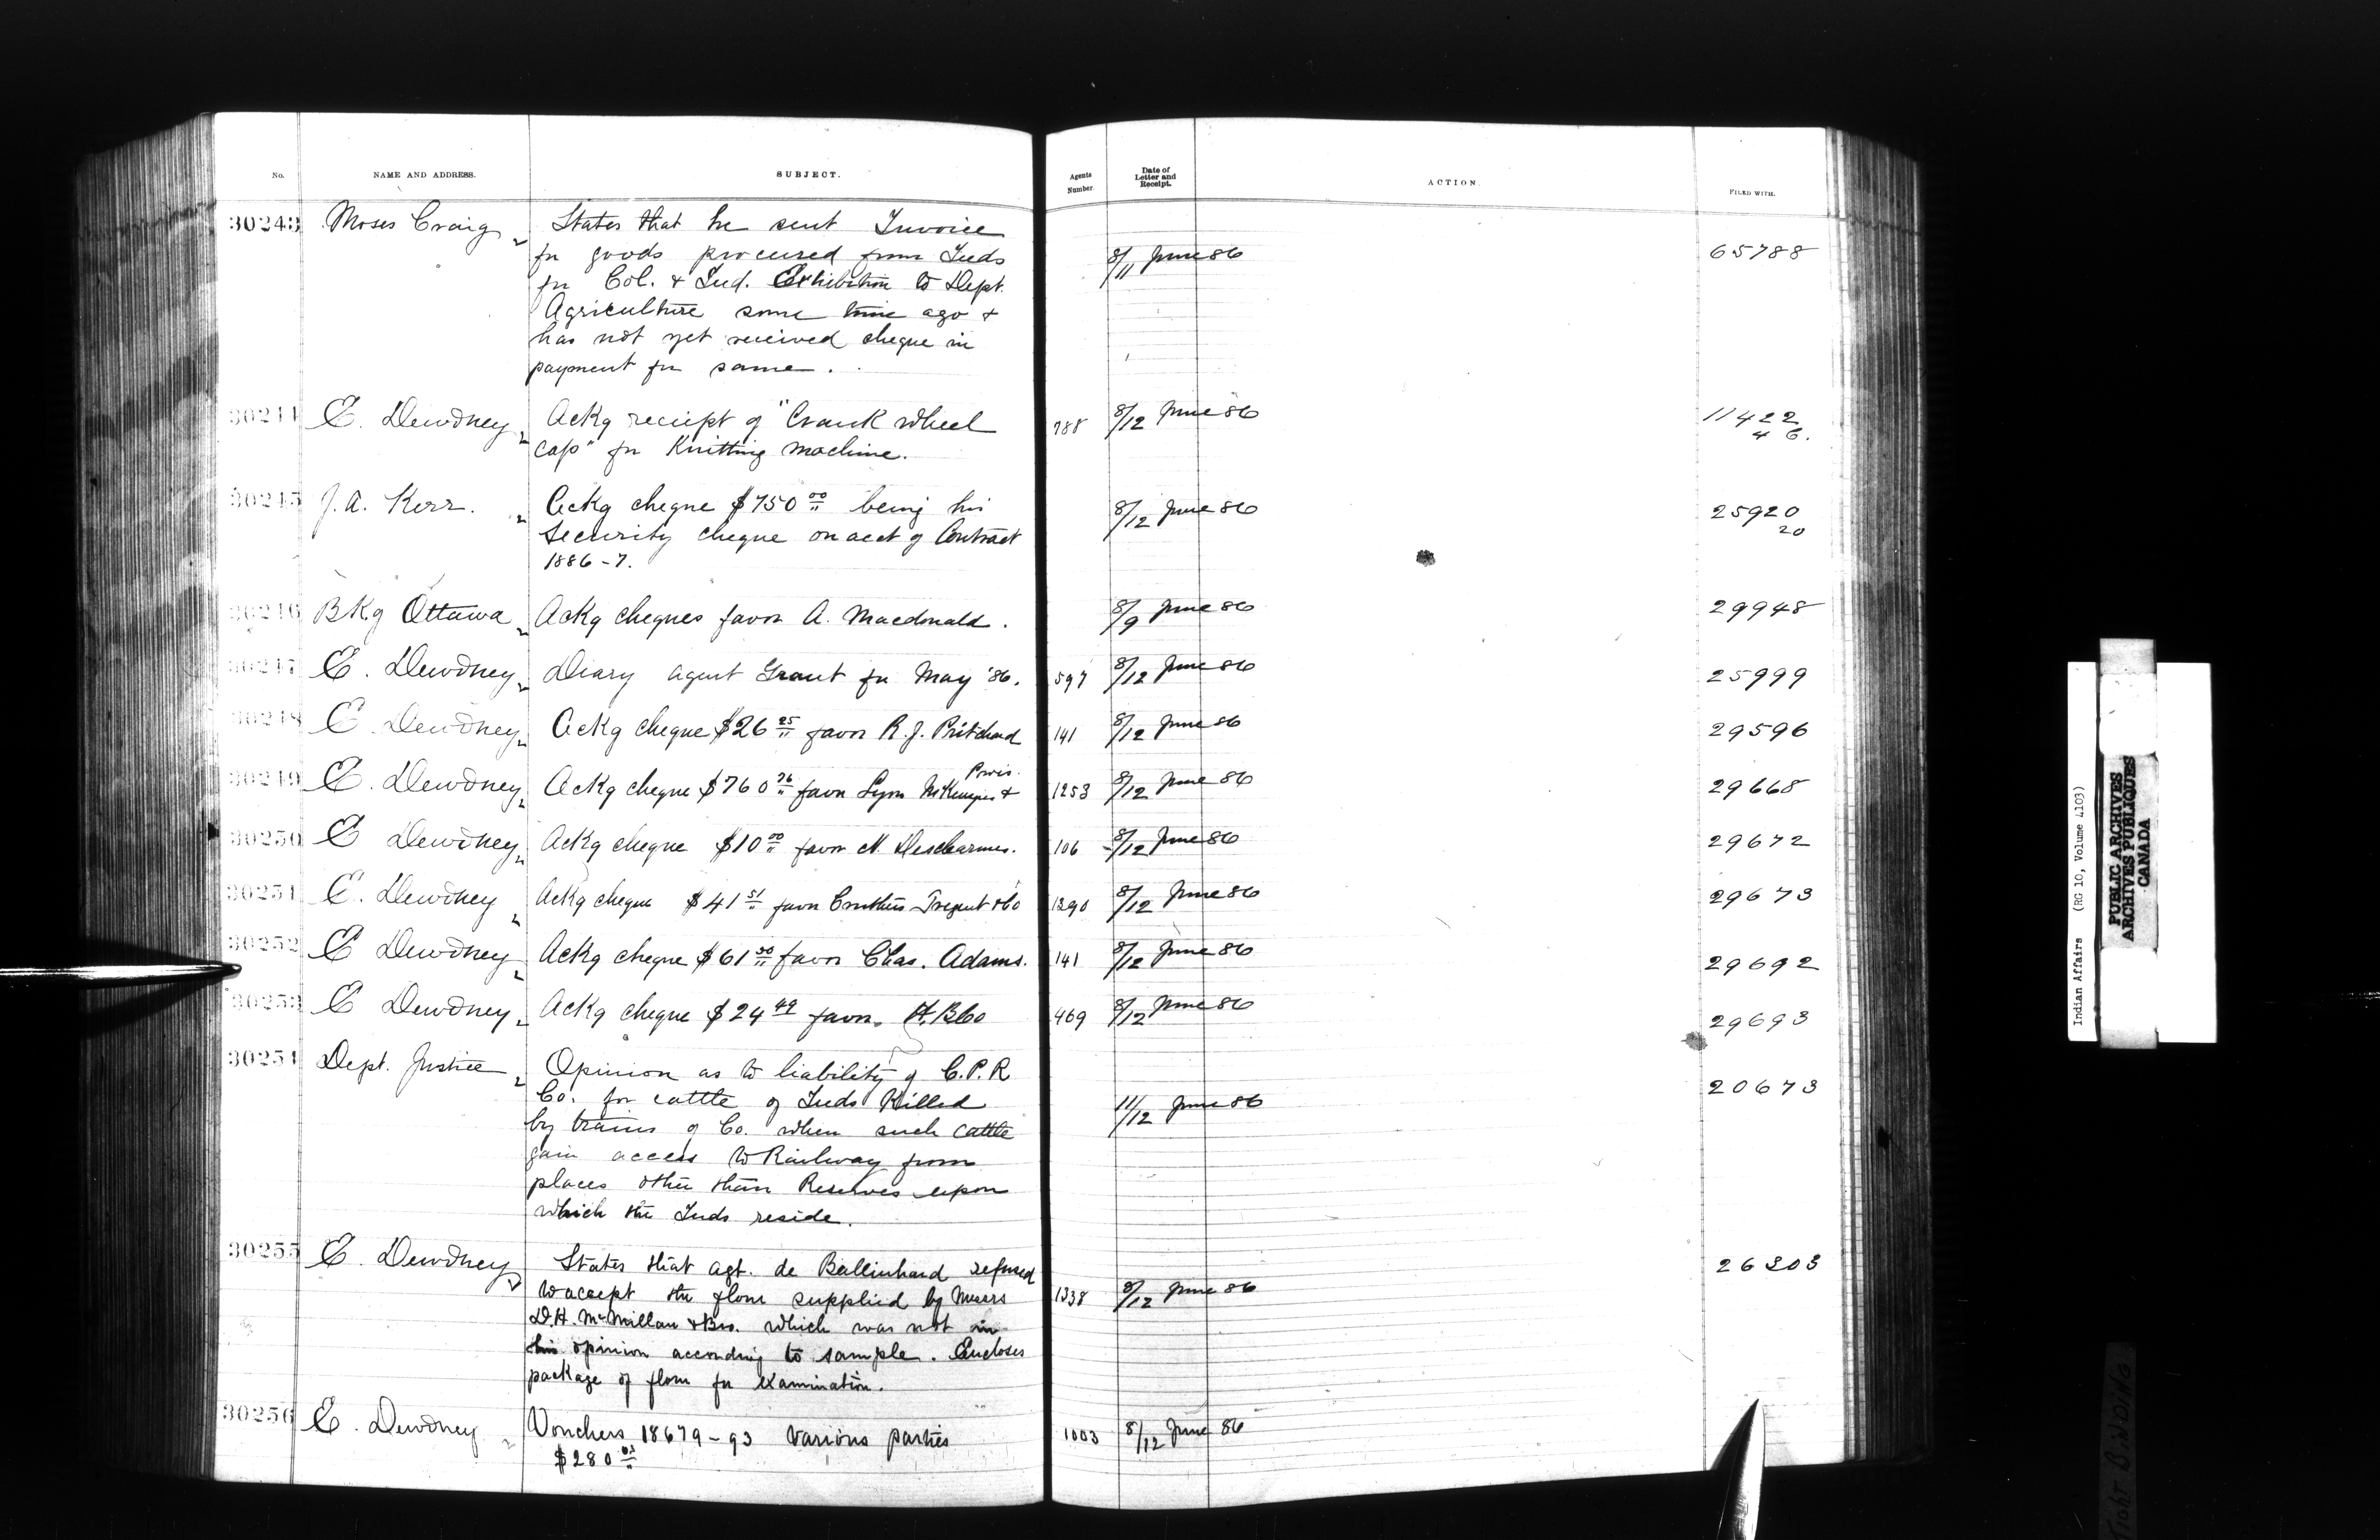 No. NAME AND ADDRESS. SUBJECT. Agents Number. Date of Letter and Receipt. ACTION. FILED WITH.
30243 Moses Craig States that he sent Invoice
for goods procured from Inds 8/11 June 86 65788
for Col. & Ind. Exhibition to Dept.
Agriculture some time ago &
has not yet received cheque in
payment for same.
30244 E. Dewdney Ackg reciept of "Crank wheel 788 8/12 June 86 11422
cap" for Knitting Machine. 46.
30245 J. A. Kerr. Ackg cheque $750 00 being his 8/12 June 86 25920
Security cheque on acct of Contract 20
1886-7.
30246 BKg Ottawa Ackg cheques favor A. Macdonald. 8/9 June 86 29948
30247 E. Dewdney Diary agent Grant for May '86. 597 8/12 June 86 25999
30248 E Dewdney Ackg cheque $26 25 favor R. J. Pritchard 141 8/12 June 86 29596
30249 E. Dewdney Ackg cheque $760 76 favor Lyon McKenzie & Powis. 1253 8/12 June 86 29668
30250 E Dewdney Ackg cheque $10 00 favor N. Descharmes. 106 8/12 June 86 29672
30251 E. Dewdney Ackg cheque $41 51 favor 1290 8/12 June 86 29673
30252 E Dewdney Ackg cheque $61 50 favor Chas. Adams. 141 8/12 June 86 29692
30253 E Dewdney Ackg cheque $24 49 favor H. B Co 469 8/12 June 86 29693
30254 Dept. Justice Opinion as to liability of C.P.R 20673
Co. for cattle of Inds Killed 11/12 June 86
by trains of Co. when such cattle
gain access to Railway from
places other than Reserves upon
which the Inds reside.
30255 E. Dewdney States that agt. de Balinhard refused 26303
to accept the flour supplied by Messrs 1338 8/12 June 86
D.H. McMillan & Bro. which was not in
his opinion according to sample. Encloses
package of flour for examination.
30256 E. Dewdney Vouchers 18679-93 various parties 1003 8/12 June 86
$280
Indian Affairs (RG 10, Volume 4103)
PUBLIC ARCHIVES
ARCHIVES PUBLIQUES
CANADA
TIGHT BINDING